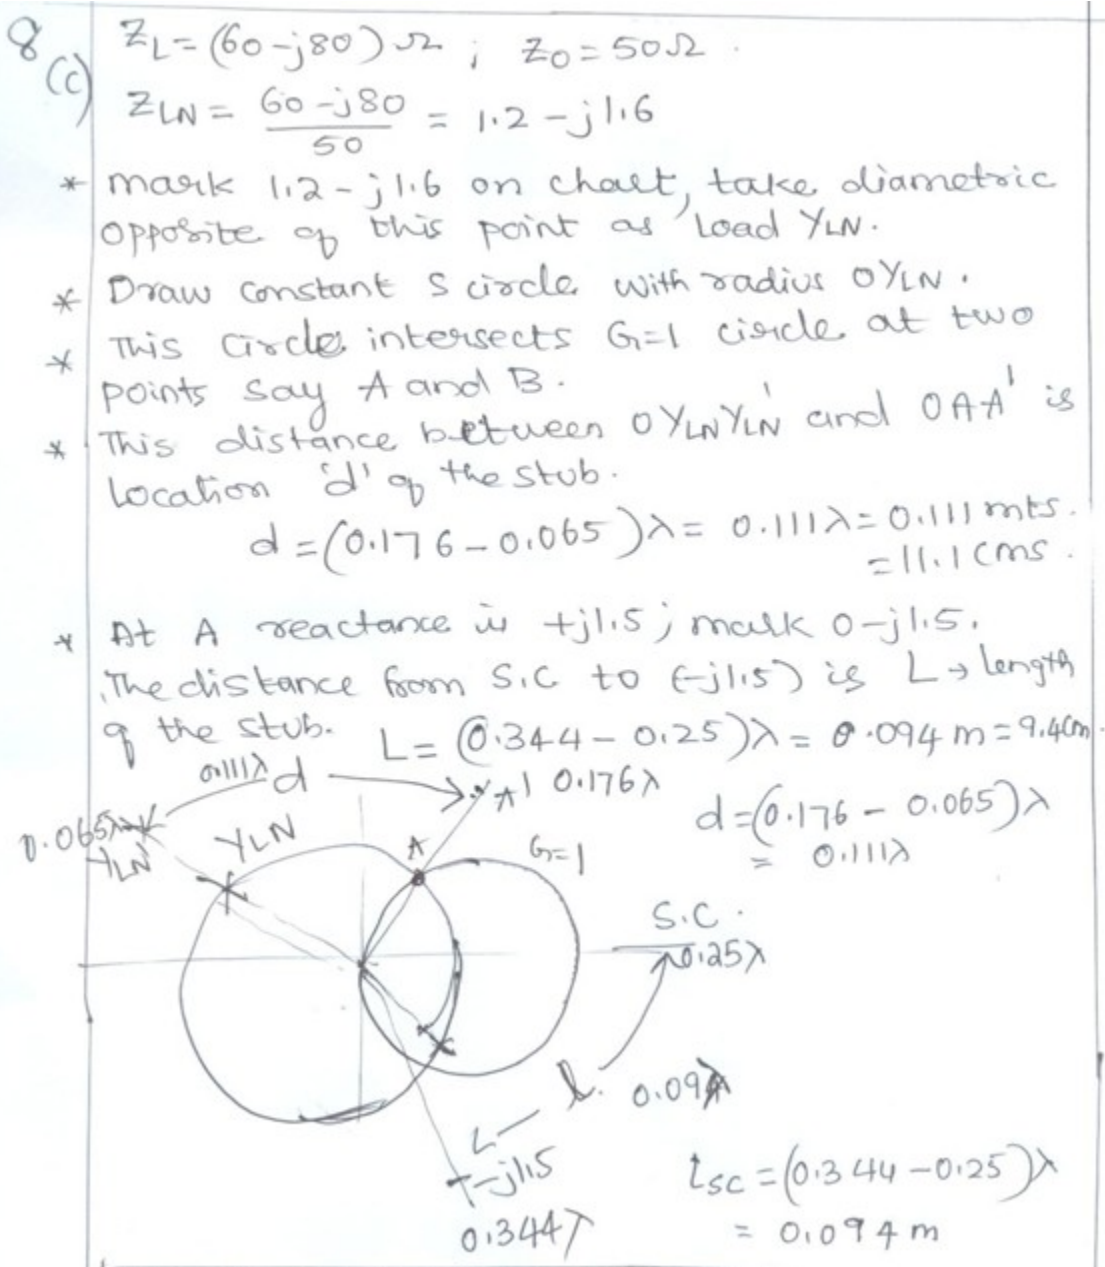 8
(c)
ZL = (60-j80) Ω ; Z0 = 50Ω.
ZLN = 60-j80 / 50 = 1.2 - j1.6
* mark 1.2-j1.6 on chart, take diametric
opposite of this point as load YLN.
* Draw constant S circle with radius OYLN.
* This circle intersects G=1 circle at two
points say A and B.
* This distance between OYLNYLN' and OAA' is
location 'd' of the stub.
d = (0.176-0.065)λ = 0.111λ = 0.111 mts.
= 11.1 cms.
* At A reactance is +j1.5; mark 0-j1.5.
The distance from S.C to (-j1.5) is L → length
of the stub. L = (0.344 - 0.25)λ = 0.094 m = 9.4cm.
0.111λ d
A' 0.176λ
d = (0.176 - 0.065)λ
= 0.111λ
0.065λ
YLN'
YLN
A
G=1
S.C.
0.25λ
l. 0.09λ
L
-j1.5
0.344λ
lsc = (0.344-0.25)λ
= 0.094 m